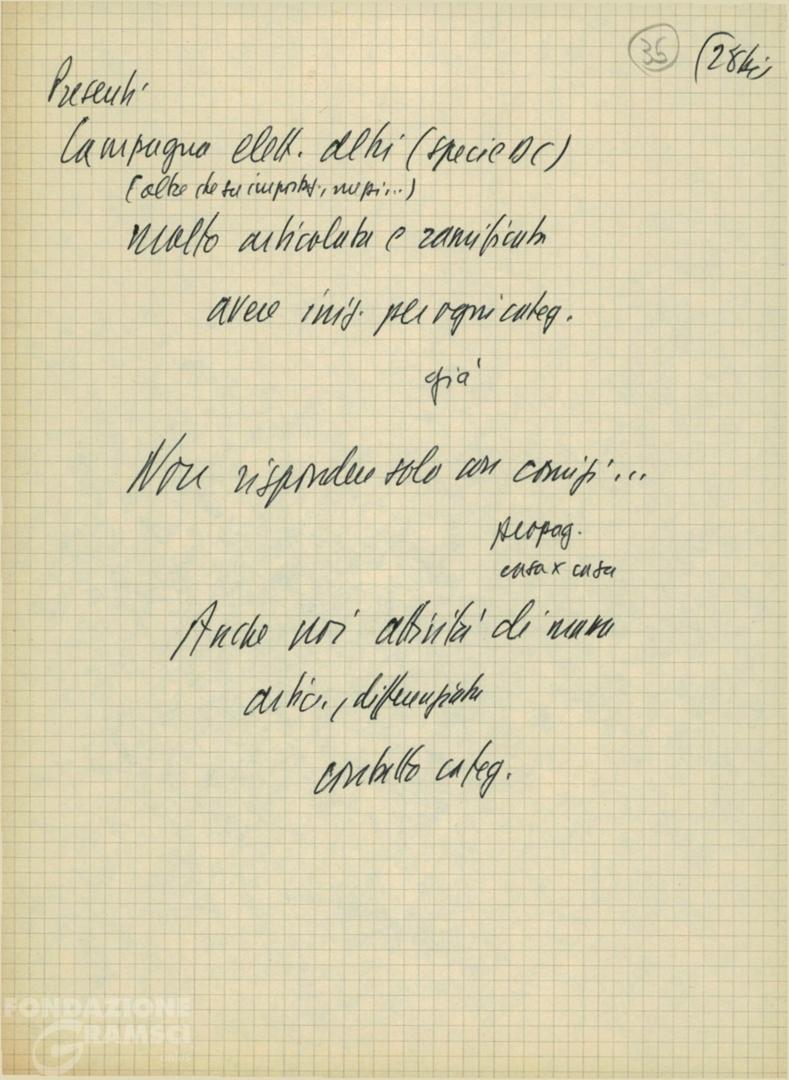 35 (28bis
Presenti
Campagna elett. altri (specie DC)
(oltre che su impost.,
molto articolata e ramificata
avere iniz. per ogni categ.
già
Non rispondere solo con comizi...
propag.
casa x casa
Anche noi attività di massa
artic., differenziata
contatto categ.
FONDAZIONE
GRAMSCI